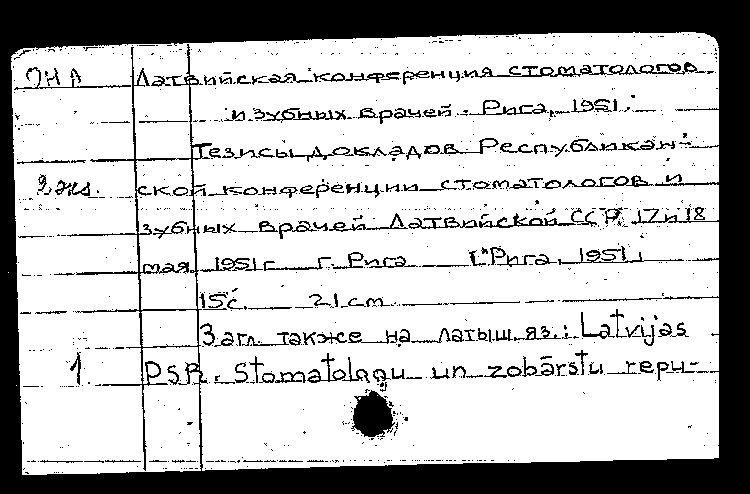 ОНА Латвийская конференция стоматологов
и зубных врачей. Рига, 1951.
Тезисы докладов Республикан-
2 экз. ской конференции стоматологов и
зубных врачей Латвийской ССР. 17 и 18
мая 1951 г. г. Рига [Рига, 1951]
15 с. 21 cm
Загл. также на латыш. яз.: Latvijas
1 PSR. Stomatologu un zobārstu repu-